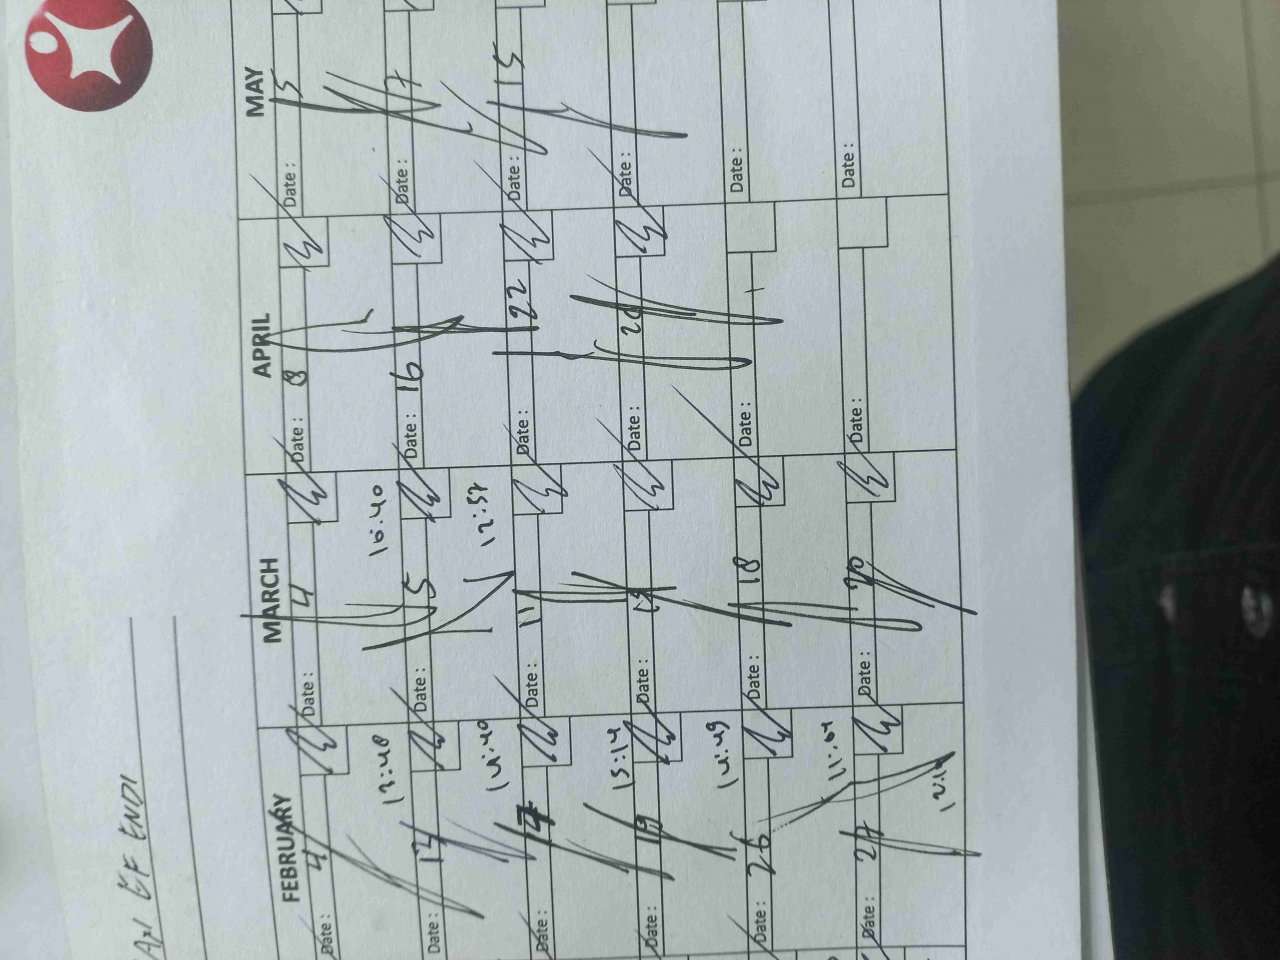 EF ENDI
FEBRUARY MARCH APRIL MAY
Date: 4 Date: 4 Date: 8 Date: 5
13:48 16:40
Date: 12 Date: 5 Date: 16 Date: 7
14:40 12:57
Date: 17 Date: 11 Date: 22 Date: 15
15:14
Date: 19 Date: Date: Date:
14:49
Date: 26 Date: 18 Date: Date:
11:04
Date: 27 Date: 20 Date: Date: